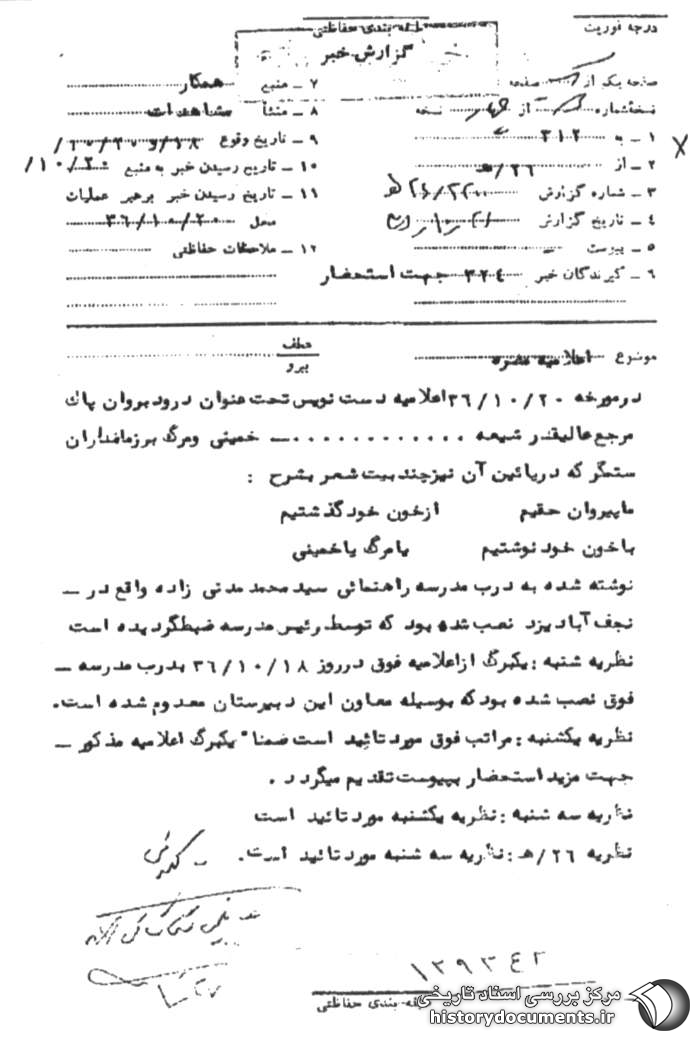 درجه فوریت
طبقه بندی حفاظتی
گزارش خبر
صفحه یک از صفحه
نسخه شماره از چهار نسخه
۱ ـ به ۳۱۲
۲ ـ از ۲۶/هـ
۳ ـ شماره گزارش ۲۶/۲۲۰۰هـ
۴ ـ تاریخ گزارش
۵ ـ پیوست
۶ ـ گیرندگان خبر ۳۲۴ جهت استحضار
۷ ـ منبع همکار
۸ ـ منشأ مشاهدات
۹ ـ تاریخ وقوع
۱۰ ـ تاریخ رسیدن خبر به منبع
۱۱ ـ تاریخ رسیدن خبر برهبر عملیات
محل ۳۶/۱۰/۲۰
۱۲ ـ ملاحظات حفاظتی
موضوع اعلامیه مضره
عطف
پیرو
درمورخه ۳۶/۱۰/۲۰ اعلامیه دست نویس تحت عنوان درود بروان پاک
مرجع عالیقدر شیعه ............ـ خمینی ومرگ برزمامداران
ستمگر که درپائین آن نیزچند بیت شعر بشرح :
ماپیروان حقیم ازخون خود گذشتیم
باخون خود نوشتیم یامرگ یاخمینی
نوشته شده به درب مدرسه راهنمائی سید محمد مدنی زاده واقع در ـ
نجف آباد یزد نصب شده بود که توسط رئیس مدرسه ضبط گردیده است
نظریه شنبه : یکبرگ ازاعلامیه فوق درروز ۳۶/۱۰/۱۸ بدرب مدرسه ـ
فوق نصب شده بود که بوسیله معاون این دبیرستان معدوم شده است.
نظریه یکشنبه : مراتب فوق مورد تائید است ضمنا" یکبرگ اعلامیه مذکور ـ
جهت مزید استحضار بپیوست تقدیم میگردد .
نظریه سه شنبه : نظریه یکشنبه مورد تائید است
نظریه ۲۶/هـ : نظریه سه شنبه مورد تائید است.
۱۳۹۳۴۲
طبقه بندی حفاظتی
مرکز بررسی اسناد تاریخی
historydocuments.ir